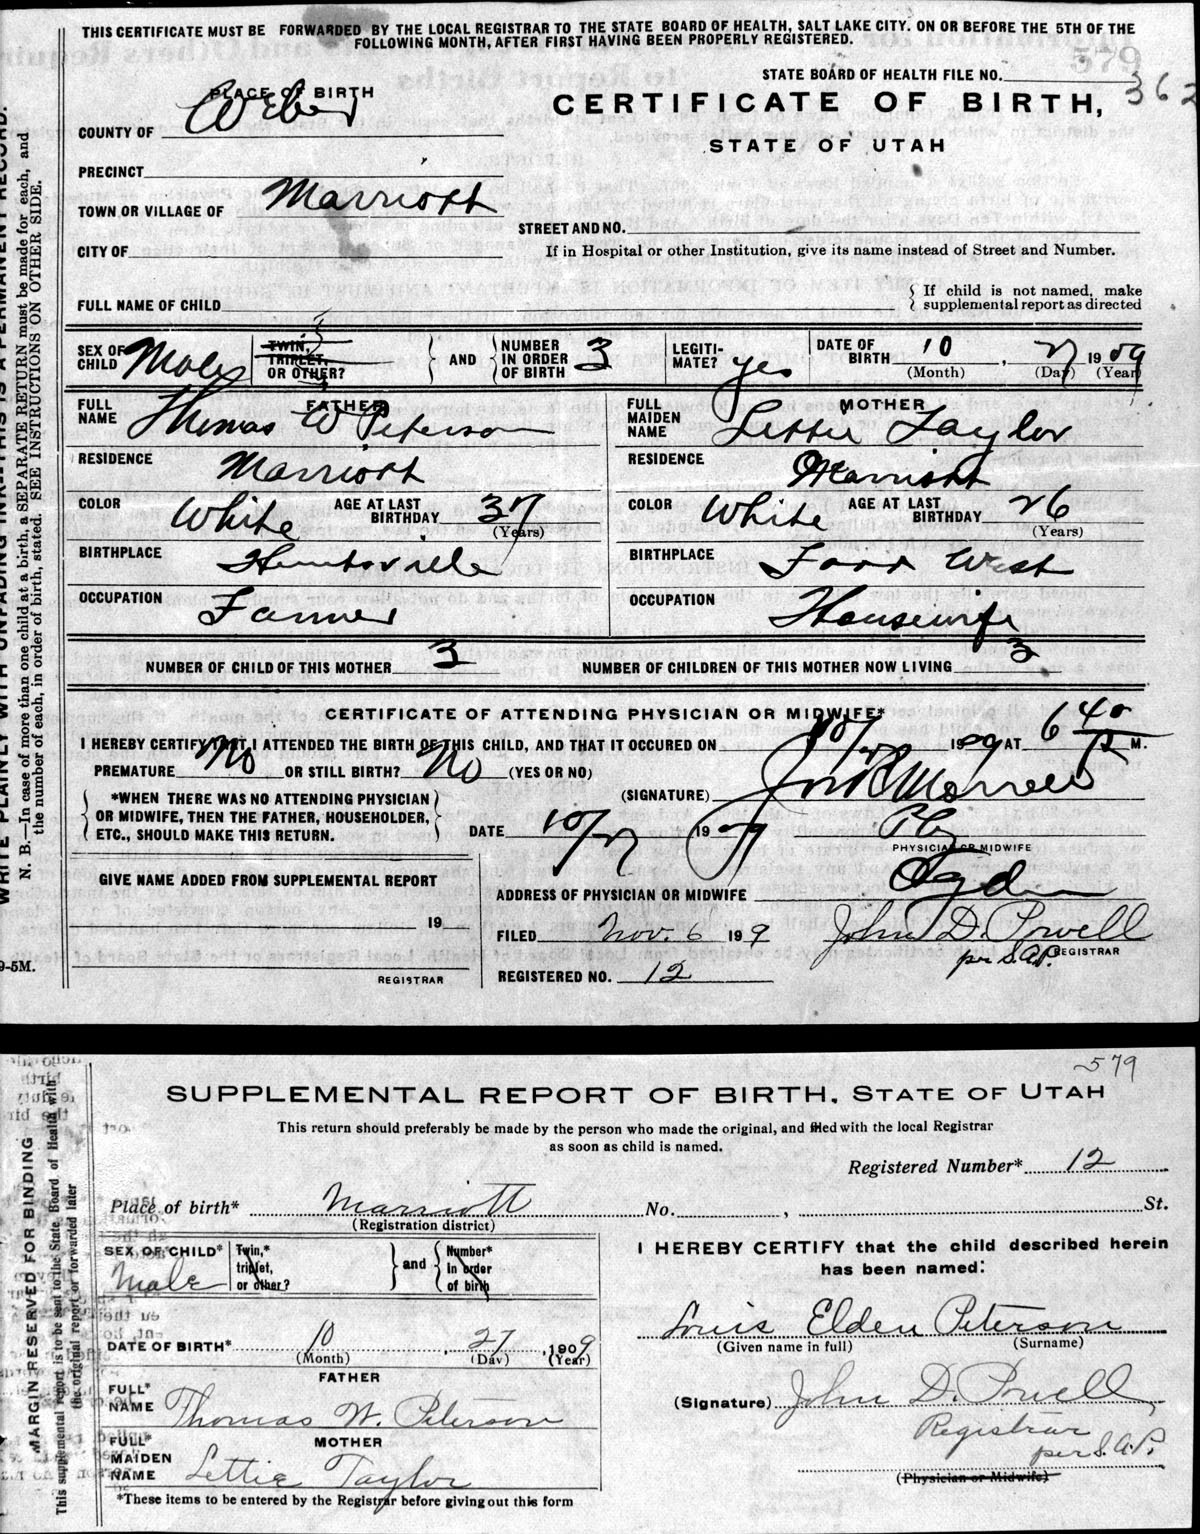 THIS CERTIFICATE MUST BE FORWARDED BY THE LOCAL REGISTRAR TO THE STATE BOARD OF HEALTH, SALT LAKE CITY. ON OR BEFORE THE 5TH OF THE
FOLLOWING MONTH, AFTER FIRST HAVING BEEN PROPERLY REGISTERED.
579
STATE BOARD OF HEALTH FILE NO. 362
PLACE OF BIRTH
CERTIFICATE OF BIRTH,
STATE OF UTAH
COUNTY OF Weber
PRECINCT
TOWN OR VILLAGE OF Marriott
STREET AND NO.
CITY OF
If in Hospital or other Institution, give its name instead of Street and Number.
FULL NAME OF CHILD
{ If child is not named, make
supplemental report as directed
SEX OF CHILD Male
TWIN, TRIPLET, OR OTHER? 3
AND
NUMBER IN ORDER OF BIRTH 3
LEGITIMATE? yes
DATE OF BIRTH 10, 27 1909
(Month) (Day) (Year)
FATHER
FULL NAME Thomas W Peterson
RESIDENCE Marriott
COLOR White AGE AT LAST BIRTHDAY 37
(Years)
BIRTHPLACE Huntsville
OCCUPATION Farmer
MOTHER
FULL MAIDEN NAME Lettie Taylor
RESIDENCE Marriott
COLOR White AGE AT LAST BIRTHDAY 26
(Years)
BIRTHPLACE Farr West
OCCUPATION Housewife
NUMBER OF CHILD OF THIS MOTHER 3 NUMBER OF CHILDREN OF THIS MOTHER NOW LIVING 3
CERTIFICATE OF ATTENDING PHYSICIAN OR MIDWIFE*
I HEREBY CERTIFY THAT I ATTENDED THE BIRTH OF THIS CHILD, AND THAT IT OCCURED ON 10/27 1909 AT 6 40 P M.
PREMATURE No OR STILL BIRTH? No (YES OR NO)
*WHEN THERE WAS NO ATTENDING PHYSICIAN
OR MIDWIFE, THEN THE FATHER, HOUSEHOLDER,
ETC., SHOULD MAKE THIS RETURN.
(SIGNATURE) Jno R Morrell
DATE 10/27 1909 Phy
PHYSICIAN OR MIDWIFE
GIVE NAME ADDED FROM SUPPLEMENTAL REPORT
19
REGISTRAR
ADDRESS OF PHYSICIAN OR MIDWIFE Ogden
FILED Nov. 6 199 John D. Powell
per S.A.P. REGISTRAR
REGISTERED NO. 12
WRITE PLAINLY WITH UNFADING INK—THIS IS A PERMANENT RECORD.
N. B.—In case of more than one child at a birth, a SEPARATE RETURN must be made for each, and
the number of each, in order of birth, stated. SEE INSTRUCTIONS ON OTHER SIDE.
9-5M.
579
SUPPLEMENTAL REPORT OF BIRTH, STATE OF UTAH
This return should preferably be made by the person who made the original, and filed with the local Registrar
as soon as child is named.
Registered Number* 12
Place of birth* Marriott No. , St.
(Registration district)
SEX OF CHILD* Male
Twin,* triplet, or other?
and
Number* in order of birth
DATE OF BIRTH* 10, 27, 1909
(Month) (Day) (Year)
FATHER
FULL* NAME Thomas W. Peterson
MOTHER
FULL* MAIDEN NAME Lettie Taylor
*These items to be entered by the Registrar before giving out this form
I HEREBY CERTIFY that the child described herein
has been named:
Louis Elden Peterson
(Given name in full) (Surname)
(Signature) John D. Powell
Registrar
per S.A.P.
(Physician or Midwife)
MARGIN RESERVED FOR BINDING
This supplemental report is to be sent to the State Board of Health with
the original report or forwarded later